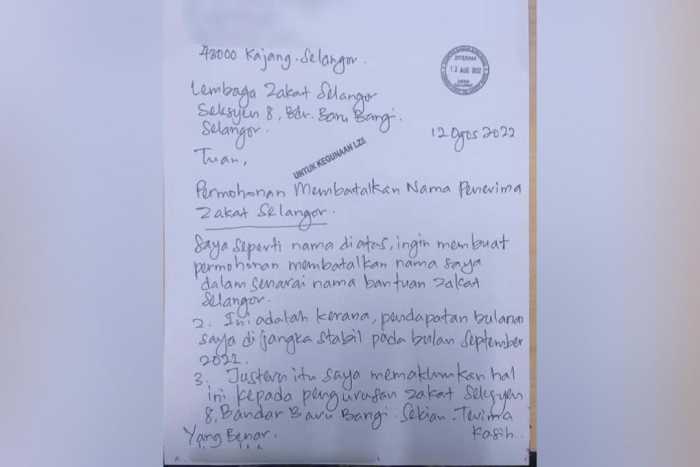 43000 Kajang. Selangor.
DITERIMA
12 AUG 2022
Lembaga Zakat Selangor
Seksyen 8, Bdr. Baru Bangi.
Selangor.
12 Ogos 2022
Tuan,
UNTUK KEGUNAAN LZS
Permohonan Membatalkan Nama Penerima
Zakat Selangor.
Saya seperti nama diatas, ingin membuat
permohonan membatalkan nama saya
dalam senarai nama bantuan zakat
Selangor.
2. Ini adalah kerana, pendapatan bulanan
saya dijangka stabil pada bulan September
2022.
3. Justeru itu saya memaklumkan hal
ini kepada pengurusan zakat seksyen
8, Bandar Baru Bangi. Sekian. Terima
Kasih.
Yang Benar.